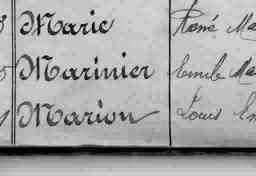 Marie René Ma
Marinier Emile Ma
Marion Louis Em